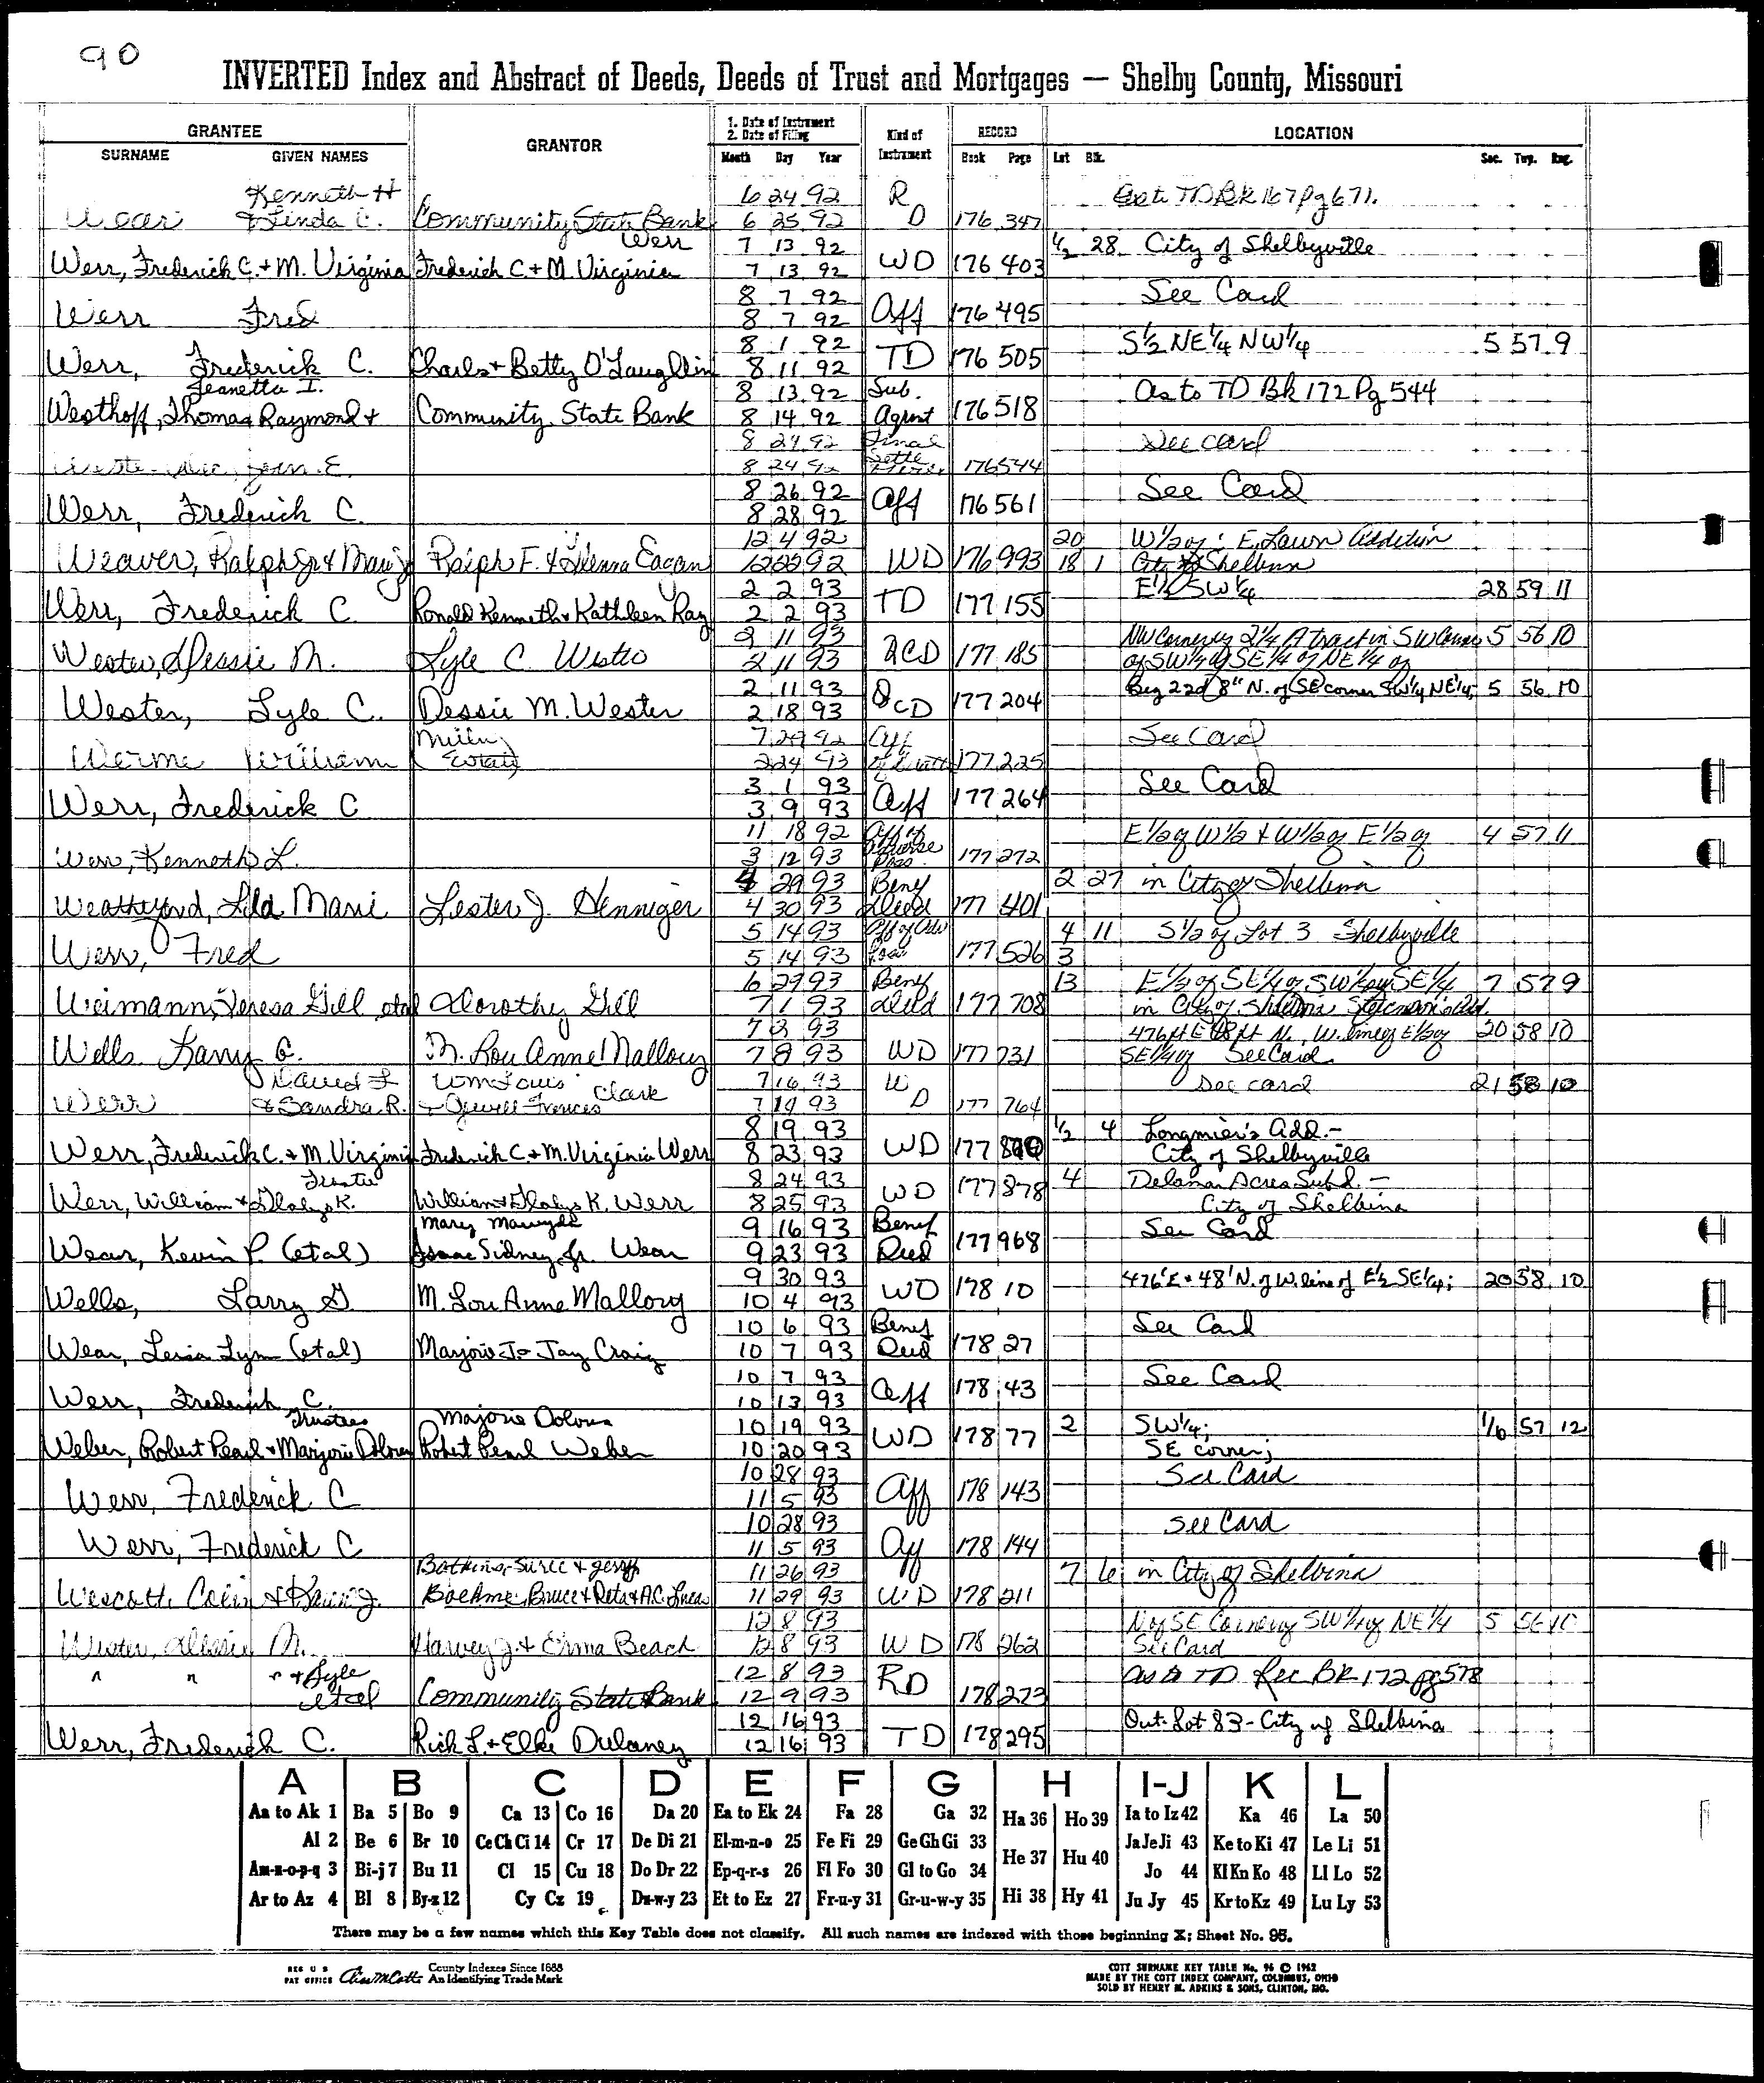 90
INVERTED Index and Abstract of Deeds, Deeds of Trust and Mortgages — Shelby County, Missouri
GRANTEE GRANTOR 1. Date of Instrument 2. Date of Filing Kind of Instrument RECORD LOCATION
SURNAME GIVEN NAMES Month Day Year Book Page Lot Blk. Sec. Twp. Rng.
Kenneth H 6 24 92 R As to TD Bk 167 Pg 671.
Wear & Linda C. Community State Bank 6 25 92 D 176 347
Werr 7 13 92 1/2 28 City of Shelbyville
Werr, Frederick C. + M. Virginia Frederick C. + M. Virginia 7 13 92 WD 176 403
8 7 92 See Card
Werr Fred 8 7 92 Aff 176 495
8 1 92 S1/2 NE1/4 NW1/4 5 57 9
Werr, Frederick C. Charles + Betty O'Laughlin 8 11 92 TD 176 505
Jeanetta I. 8 13 92 Sub. As to TD Bk 172 Pg 544
Westhoff, Thomas Raymond + Community State Bank 8 14 92 Agmt 176 518
8 24 92 Final See card
Jean E. 8 24 92 Settle 176 544
8 26 92 See Card
Werr, Frederick C. 8 28 92 Aff 176 561
12 4 92 20 W1/2 of: E. Lawn Addition
Weaver, Ralph Jr & Ralph F. & Glenna Eagan 12 22 92 WD 176 993 18 1 City of Shelbina
2 2 93 E1/2 SW1/4 28 59 11
Werr, Frederick C. Ronald Kenneth + Kathleen Ray 2 2 93 TD 177 155
2 11 93 NW Corner of 2 1/4 A tract in SW Corner 5 56 10
Wester, Dessie M. Lyle C. Wester 2 11 93 QCD 177 185 of SW1/4 of SE1/4 of NE1/4 of
2 11 93 Beg 22rd 8" N. of SE corner SW1/4 NE1/4; 5 56 10
Wester, Lyle C. Dessie M. Wester 2 18 93 QCD 177 204
7 29 92 Aff See Card
William 2 24 93 177 225
3 1 93 See Card
Werr, Frederick C 3 9 93 Aff 177 264
11 18 92 Aff of E1/2 of W1/2 + W1/2 of E1/2 of 4 57 11
Werr, Kenneth L. 3 12 93 Adverse Poss. 177 272
4 29 93 Benf 2 27 in City of Shelbina
Weatherford, Lila Marie Lester J. Henniger 4 30 93 Deed 177 401
5 14 93 Aff of Adv 4 11 S1/2 of Lot 3 Shelbyville
Werr, Fred 5 14 93 Poss 177 526 3
6 29 93 Benf 13 E1/2 of SE1/4 of SW1/4 of SE1/4 7 57 9
Weimann, Teresa Gill etal Dorothy Gill 7 1 93 Deed 177 708 in City of Shelbina
7 93 476 ft E 48 ft N. W. line of E1/2 of 20 58 10
Wells Larry G. M. Lou Anne Mallory 7 8 93 WD 177 731 SE1/4 of See Card
David L Wm Louis 7 16 93 W See card 21 58 10
Werr & Sandra R. + Jewell Frances Clark 7 19 93 D 177 764
8 19 93 1/2 4 Longmier's Add. -
Werr, Frederick C. + M. Virginia Frederick C. + M. Virginia Werr 8 23 93 WD 177 City of Shelbyville
Trustee 8 24 93 4 Delamar Acres Subd. -
Werr, William + Gladys K. William + Gladys K. Werr 8 25 93 WD 177 878 City of Shelbina
Mary 9 16 93 Benef See Card
Wear, Kevin P. (etal) Isaac Sidney, Jr. Wear 9 23 93 Deed 177 968
9 30 93 476'E + 48'N. of W. line of E1/2 SE1/4; 20 58 10
Wells, Larry G. M. Lou Anne Mallory 10 4 93 WD 178 10
10 6 93 Benef See Card
Wear, Lesia Lynn (etal) Marjorie Jo Jay Craig 10 7 93 Deed 178 27
10 7 93 See Card
Werr, Frederick C. 10 13 93 Aff 178 43
Trustees Marjorie Dolores 10 19 93 2 SW1/4; 1/6 57 12
Weber, Robert Pearl + Marjorie Dolores Robert Pearl Weber 10 20 93 WD 178 77 SE corner;
10 28 93 See Card
Werr, Frederick C 11 5 93 Aff 178 143
10 28 93 See Card
Werr, Frederick C 11 5 93 Aff 178 144
11 26 93 7 6 in City of Shelbina
Wescott, Colin & Boehme, Bruce + Reta + A.C. 11 29 93 WD 178 211
12 8 93 N of SE Corner of SW1/4 of NE1/4 5 56 10
Wester, Dessie M. Harvey J. + Erma Beach 12 8 93 WD 178 262 See Card
" " " + Lyle 12 8 93 RD As to TD Rec Bk 172 pg 578
etal Community State Bank 12 9 93 178 273
12 16 93 Out-Lot 83 - City of Shelbina
Werr, Frederick C. Rick L. + Elke Dulaney 12 16 93 TD 178 295
A B C D E F G H I-J K L
Aa to Ak 1 Ba 5 Bo 9 Ca 13 Co 16 Da 20 Ea to Ek 24 Fa 28 Ga 32 Ha 36 Ho 39 Ia to Iz 42 Ka 46 La 50
Al 2 Be 6 Br 10 Ce Ch Ci 14 Cr 17 De Di 21 El-m-n-o 25 Fe Fi 29 Ge Gh Gi 33 He 37 Hu 40 Ja Je Ji 43 Ke to Ki 47 Le Li 51
Am-n-o-p-q 3 Bi-j 7 Bu 11 Cl 15 Cu 18 Do Dr 22 Ep-q-r-s 26 Fl Fo 30 Gl to Go 34 Jo 44 Kl Kn Ko 48 Ll Lo 52
Ar to Az 4 Bl 8 By-z 12 Cy Cz 19 Du-w-y 23 Et to Ez 27 Fr-u-y 31 Gr-u-w-y 35 Hi 38 Hy 41 Ju Jy 45 Kr to Kz 49 Lu Ly 53
There may be a few names which this Key Table does not classify. All such names are indexed with those beginning X; Sheet No. 95.
REG U S PAT OFFICE County Indexes Since 1888 An Identifying Trade Mark
COTT SURNAME KEY TABLE No. 96 © 1962
MADE BY THE COTT INDEX COMPANY, COLUMBUS, OHIO
SOLD BY HENRY M. ADKINS & SONS, CLINTON, MO.